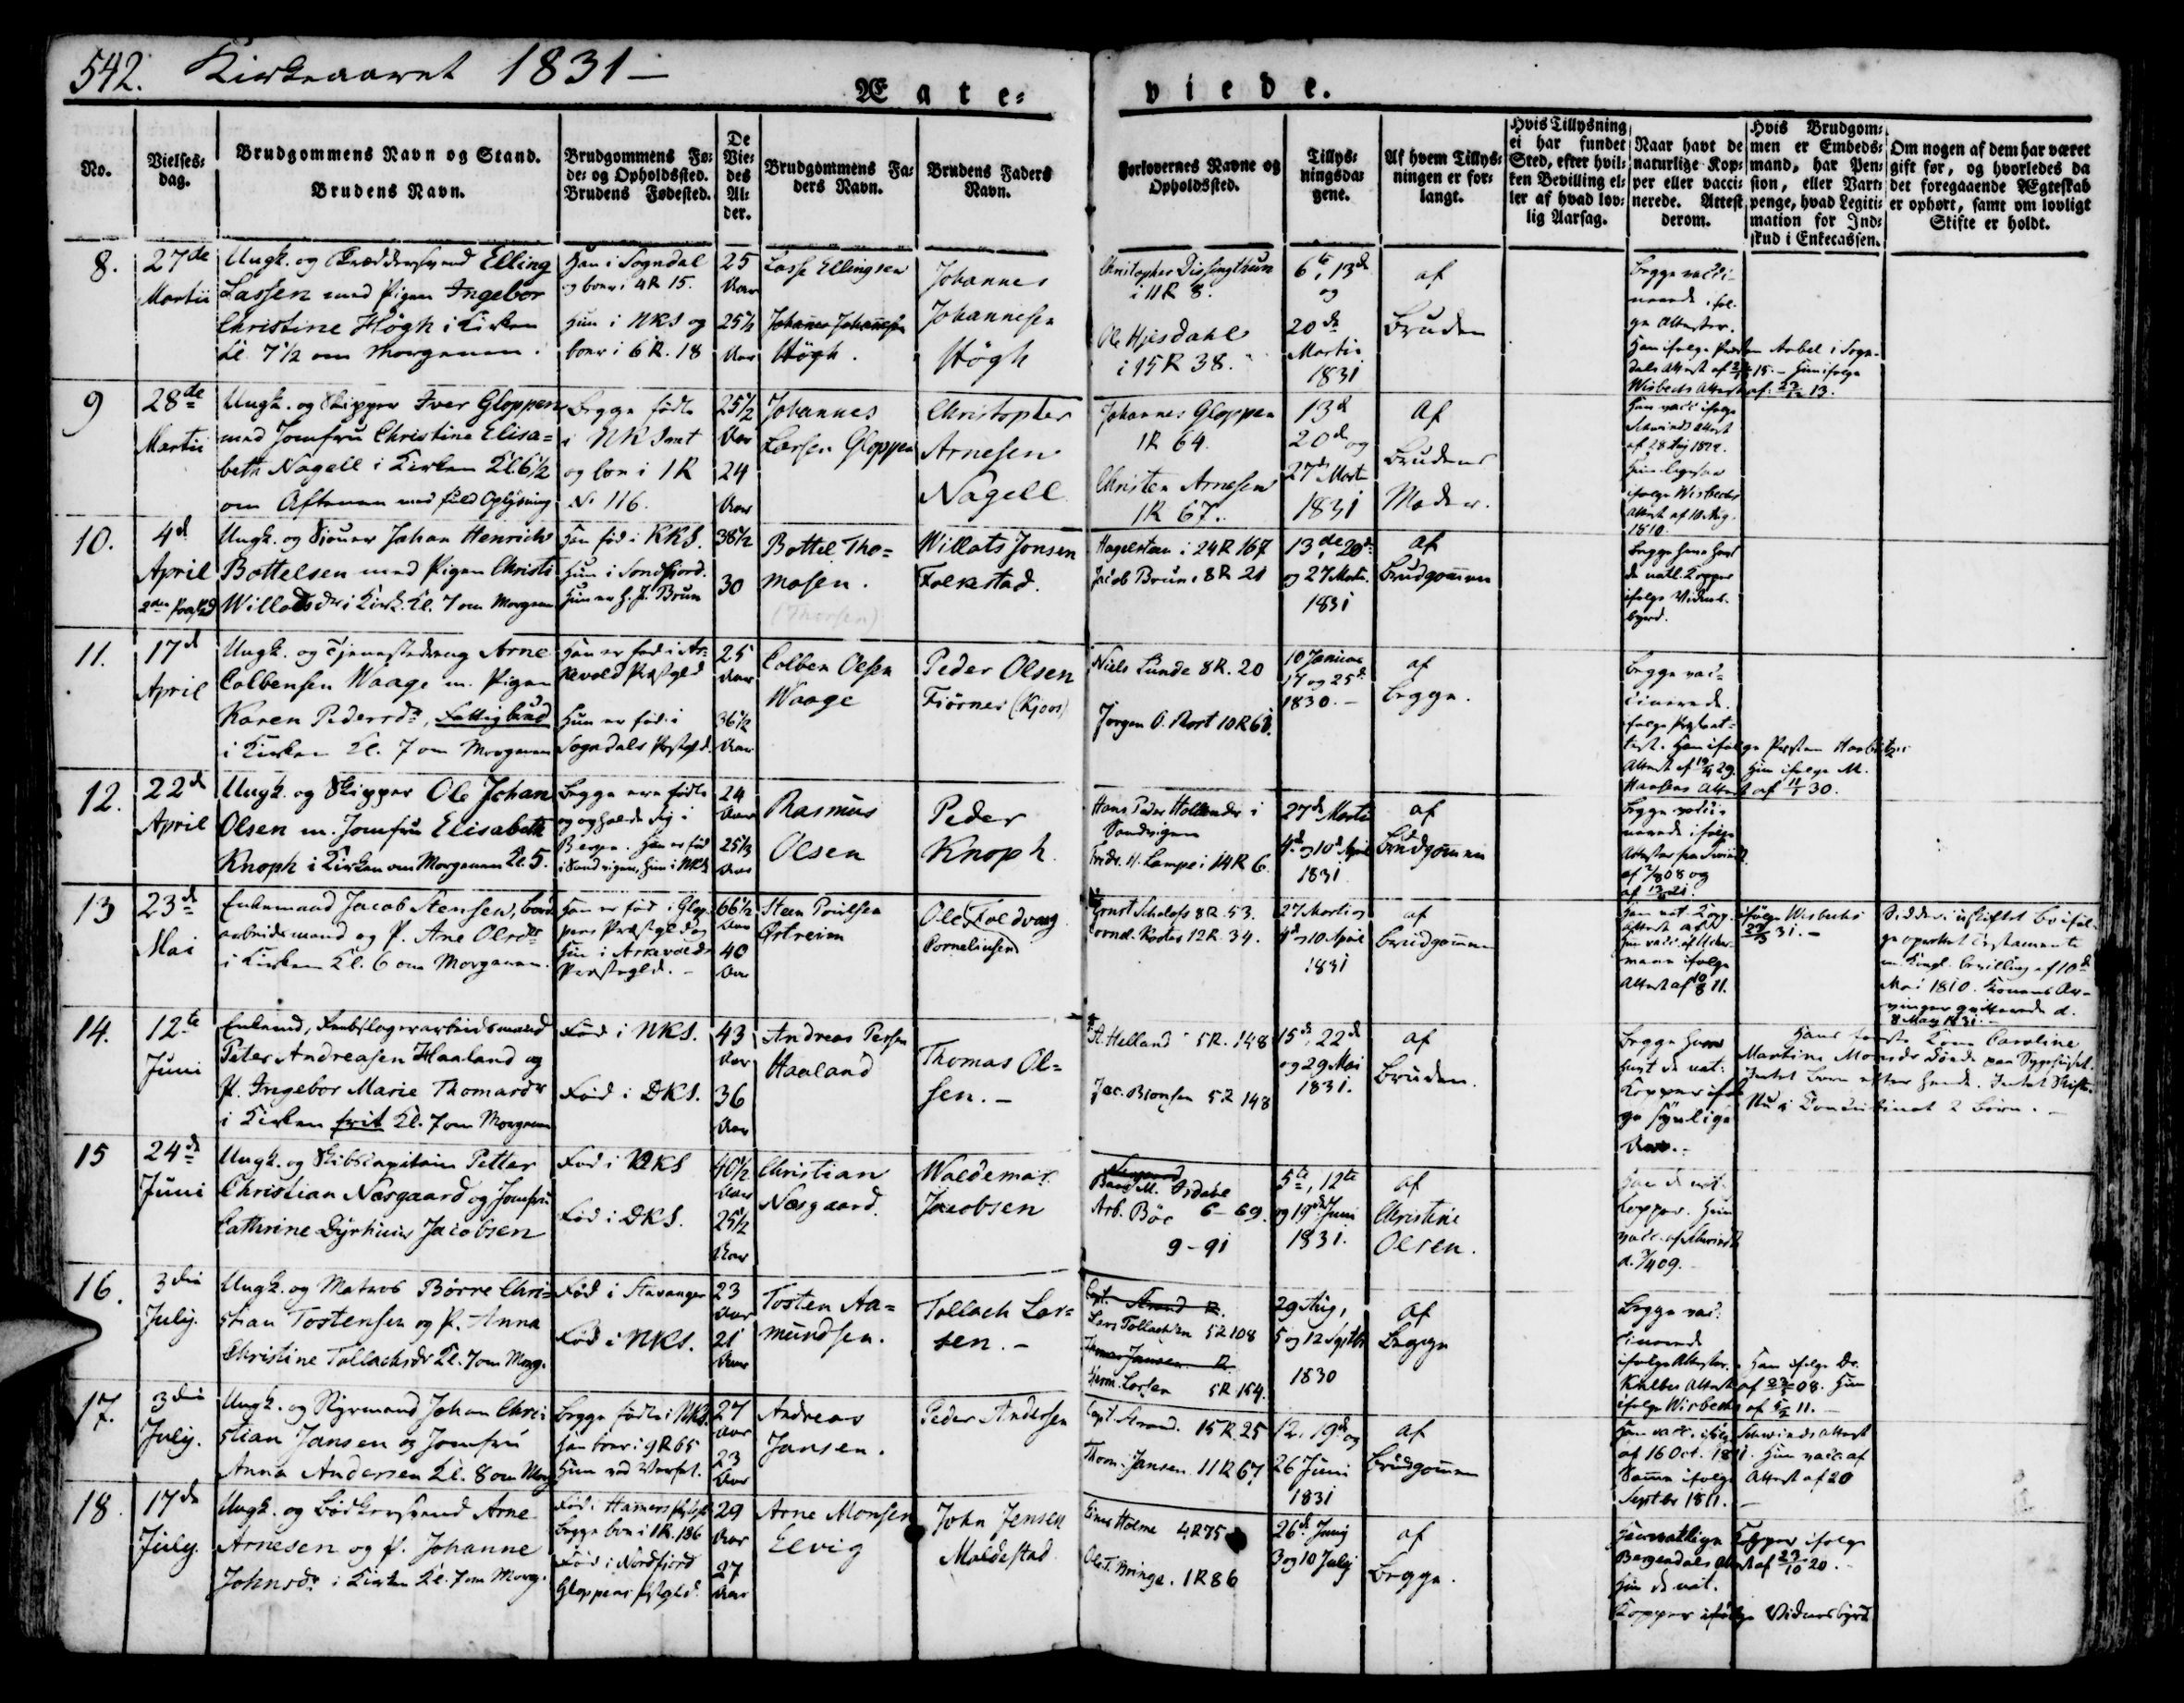 542. Kirkeaaret 1831 —
Ægte-
viede.
No.
Vielses-
dag.
Brudgommens Navn og Stand.
Brudens Navn.
Brudgommens Fø-
de- og Opholdssted.
Brudens Fødested.
De
Vie-
des
Al-
der.
Brudgommens Fa-
ders Navn.
Brudens Faders
Navn.
Forlovernes Navne og
Opholdssted.
Tillys-
ningsda-
gene.
Af hvem Tillys-
ningen er for-
langt.
Hvis Tillysning
ei har fundet
Sted, efter hvil-
ken Bevilling el-
ler af hvad lov-
lig Aarsag.
Naar havt de
naturlige Kop-
per eller vacci-
nerede. Attest
derom.
Hvis Brudgom-
men er Embeds-
mand, har Pen-
sion, eller Vart-
penge, hvad Legiti-
mation for Ind-
skud i Enkecassen.
Om nogen af dem har været
gift før, og hvorledes da
det foregaaende Ægteskab
er ophørt, samt om lovligt
Skifte er holdt.
8.
27de
Martii
Ungk. og Skræddersvend Elling
Lassen med Pigen Ingebor
Christine Høgh i Kirken
Kl. 7 1/2 om Morgenen.
Han i Sogndal
og boer i 4R 15.
Hun i NKS og
boer i 6R. 18
25
Aar
25 1/2
Aar
Lasse Ellingsen
Johanes Johanesen
Høgh.
Johannes
Johannesen
Høgh
i 11R 8.
Ole Hjisdahl
i 15R 38.
6te, 13de
og
20de
Martii
1831
af
Bruden
Begge vacci-
nerede iføl-
ge Attester.
Han ifølge Præsten Aabel i Sogn-
dals Attest af
15. – Hun ifølge
Wisbechs Attest af
13.
9
28de
Martii
Ungk. og Skipper Iver Gloppen
med Jomfru Christine Elisa-
beth Nagell i Kirken Kl. 6 1/2
om Aftenen med fuld Oplysning
Begge fødte
i NKS
og boe i 1R
No 116.
25 1/2
Aar
24
Aar
Johannes
Larsen Gloppen
Christopher
Arnesen
Nagell
Johannes Gloppen
1R 64.
Christen Arnesen
1R 67.
13de
20de og
27de Marti
1831
Af
Brudens
Moder.
Han vacc ifølge
Schwinds Attest
af 28
Hun ligesaa
ifølge Wisbechs
Attest af 10 Aug.
1810.
10.
4de
April
Ungk. og Johan Henrich
Bottelsen med Pigen Christi
Willatsdr i Kirk. Kl. 7 om Morgenen
Han fød i KKS.
Hun i Søndfjord.
38 1/2
30
Bottel Tho-
masen.
(Thorsen)
Willats Jonsen
Folkestad.
Hagelsteen i 24R 167
Jacob Brun i 8R 21
13de, 20de
og 27 Martii.
1831
af
Brudgommen
Begge have havt
de natl. Kopper
ifølge Vidnes-
byrd.
11.
17de
April
Ungk. og Tjenestedreng Arne
Colbensen Waage m. Pigen
Karen Pedersdr, Fattigbrud
i Kirken Kl. 7 om Morgenen
Han er fød i Ar-
devold Præstgld
Hun er fød i
Sogndals Præstgld.
25
Aar
36 1/2
Aar
Colben Olsen
Waage
Peder Olsen
Fiørnes (Kjoos)
Niels Lunde 8R. 20
Jørgen O. Mort 10R 68.
10 Januar
17 og 25de
1830. –
af
Begge.
Begge vac-
cinerede
ifølge Præsteat-
test. Han ifølge Præsten
Attest af
29. Hun ifølge M.
Attest af
30.
12.
22de
April
Ungk. og Skipper Ole Johan
Olsen m. Jomfru Elisabeth
Knoph i Kirken om Morgenen Kl. 5.
Begge ere fødte
og opholde sig i
Bergen. Han er fød
i Sandvigen, Hun i NKS
24
Aar
25 1/2
Aar
Rasmus
Olsen
Peder
Knoph.
Hans Peder Hollender i
Sandvigen
Fridr. H. Lampe i 14R 6
27de Martii
4de og 10de April
1831
af
Brudgommen
Begge vacci-
nerede ifølge
Attester fra Schwindt
af 7/8 08 og
af
21.
13
23de
Mai
Enkemand Jacob Stensen, bord-
arbeidsmand og P. Ane Olsdr
i Kirken Kl. 6 om Morgenen.
Han er fød i Glop-
pens Præstgld og
Hun i Askevolds
Præstegld. –
66 1/2
Aar
40
Aar
Steen Poulsen
Østreim
Ole Foldvaag
Cornelius
Ernst Schelass 8R. 53.
Cornel. Rootes 12R. 34.
27 Marti og
4de og 10 April
1831
af
Brudgommen
Han nat. Kop.
ifølge Wisbechs
Attest af
31. –
Hun vacc. af
mann ifølge
Attest af 10/8 11.
Sidder i uskiftet Bo iføl-
ge oprettet Testamente
m. Kongl. Bevilling af 10de
Mai 1810. Konens Ar-
vinger qvitterede d.
8 May 1831. –
14.
12te
Juni
Enkemd, arbeidsmand
Peter Andreasen Haaland og
P. Ingebor Marie Thomasdr
i Kirken frit Kl. 7 om Morgenen
Fød i NKS.
Fød i DKS.
43
Aar
36
Aar
Andreas Persen
Haaland
Thomas Ol-
sen. –
A. Helland 5R. 148
5R 148
15de, 22de
og 29 Mai
1831.
af
Bruden.
Begge have
havt de nat:
Kopper iføl-
ge synlige
Aar. –
Hans første Kone Caroline
Martine Monsdr døde paa Sygehuset.
Intet Barn efter hende. Intet Skifte.
Nu i Concubinat 2 Børn. –
15
24de
Juni
Ungk. og Skibscapitain Petter
Christian Næsgaard og Jomfru
Cathrine Dyrhuus Jacobsen
Fød i NKS
Fød i DKS.
40 1/2
Aar
25 1/2
Aar
Christian
Næsgaard.
Waldemar
Jacobsen
6 – 69.
Arb. Bøe
9 – 91
5te, 12te
og 19de Juni
1831.
af
Christine
Olsen.
Han de nat.
Kopper. Hun
vacc. af Schwindt
d. 7/4 09.
16.
3die
July.
Ungk. og Matros Børre Chri-
stian Tostensen og P. Anna
Christine Tollachsdr Kl. 7 om Morg.
Fød i Stavanger
Fød i NKS.
23
Aar
21
Aar
Tosten Aa-
mundsen.
Tollach Lar-
sen. –
Capt. Strand R.
Lars Tollachsen 5R 108
Thomas Jansen R.
Herm. Larsen 5R 154.
29 Aug,
5 og 12 Septbr
1830
af
Begge
Begge vac-
cinerede
ifølge Attester. Han ifølge Dr.
Kalbes Attest af
08. Hun
ifølge Wisbechs af
11. –
17.
3die
July.
Ungk. og Styrmand Johan Chri-
stian Jansen og Jomfru
Anna Andersen Kl. 8 om Morg
Begge fødte i NKS.
Han boer i 9R 65
27
Aar
23
Aar
Andreas
Jansen.
Peder Andersen
Capt. Strand. 15R. 25
Thom. Jansen 11R 67
12. 19de og
26 Juni
1831
af
Brudgommen
Han vacc. ifølge Schwinds Attest
af 16 Oct. 1811. Hun vacc af
Samme ifølge Attest af 20
Septbr 1811. –
18.
17de
July.
Ungk. og Bødkersvend Arne
Arnesen og P. Johanne
Johnsdr. i Kirken Kl. 7 om Morg.
Fød i Hammers Præstgld
Begge boe i 1R. 186
Fød i Nordfjord
Gloppens Pstgld.
29
Aar
27
Aar
Arne Monsen
Elvig
John Jensen
Moldestad
Einer Holme 4R 75
Ole T. Bringe. 1R 86
26de Juny
3 og 10 July
af
Begge.
Han naturlige Kopper ifølge
Bergendals Attest af 23/10 20. –
Hun de nat.
Kopper ifølge Vidnesbyrd